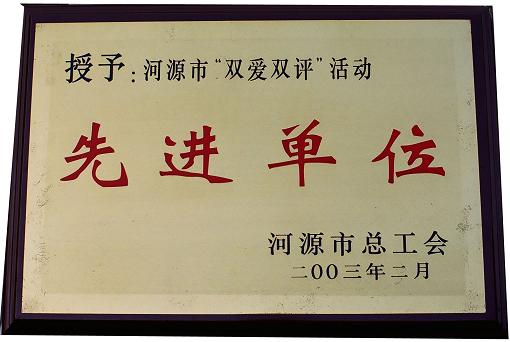 授予:河源市“双爱双评”活动
先进单位
河源市总工会
二00三年二月